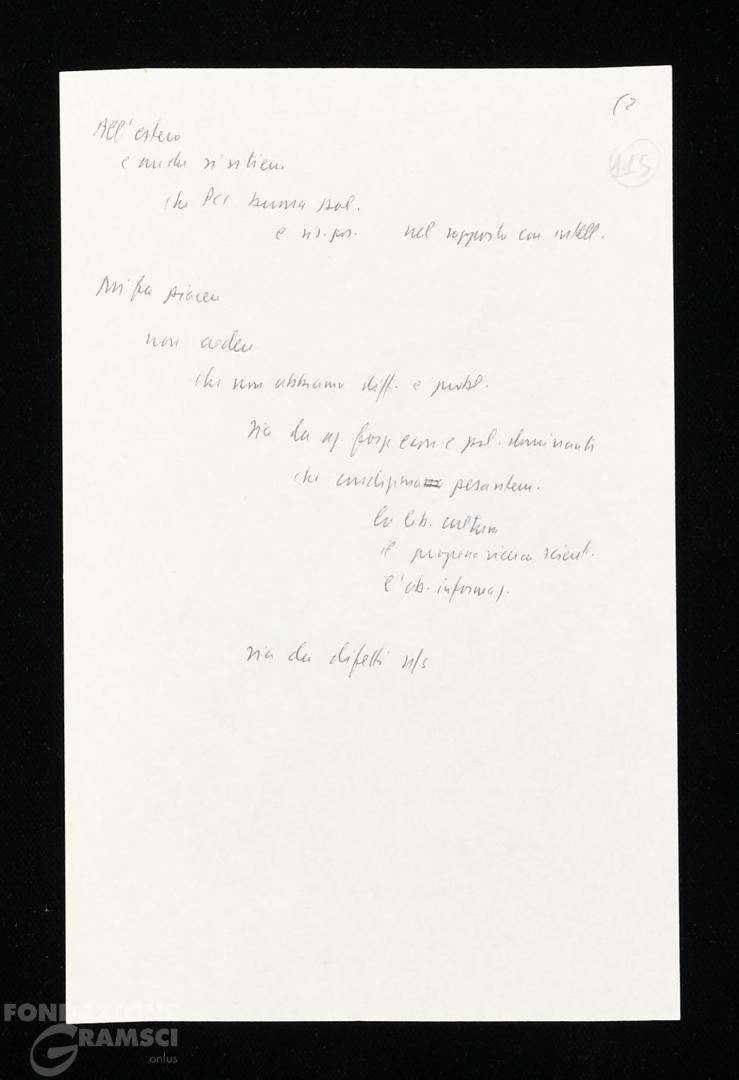 All'estero
e anche si ritiene
che PCI buona pol.
e ris. pos. nel rapporto con intell.
115
Mi fa piacere
non credere
che non abbiamo diff. e probl.
sia da forze econ. e pol. dominanti
che pesantem.
la lib. cultura
il progresso ricerca scient.
l'ob. informaz.
sia da difetti n/s
FONDAZIONE
GRAMSCI
.onlus